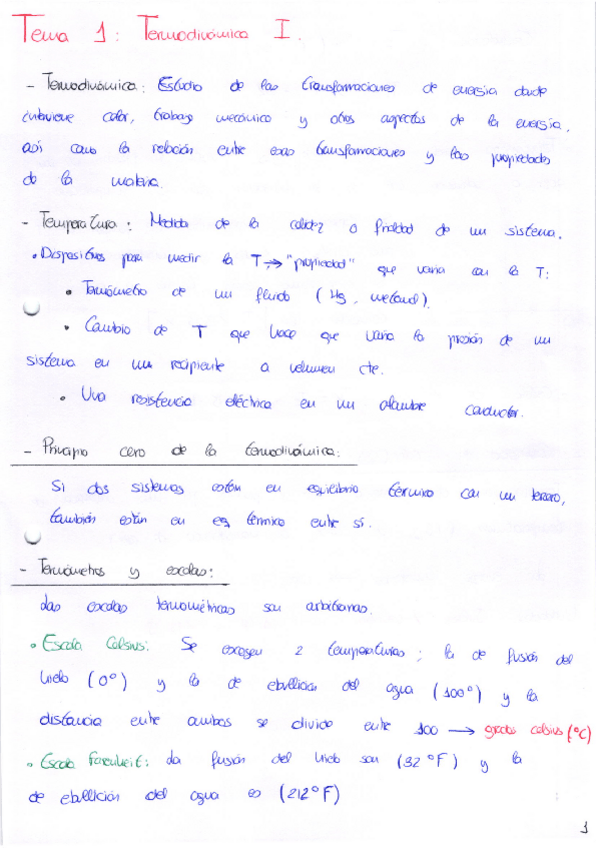 Tema 1: Termodinámica I.
- Termodinámica: Estudio de las transformaciones de energía donde
interviene calor, trabajo mecánico y otros aspectos de la energía,
así como la relación entre esas transformaciones y las propiedades
de la materia.
- Temperatura: Medida de la calidez o frialdad de un sistema.
• Dispositivos para medir la T → "propiedad" que varía con la T:
• Termómetro de un fluido (Hg, metanol).
• Cambio de T que hace que varía la presión de un
sistema en un recipiente a volumen cte.
• Una resistencia eléctrica en un alambre conductor.
- Principio cero de la termodinámica:
Si dos sistemas están en equilibrio térmico con un tercero,
también están en eq térmico entre sí.
- Termómetros y escalas:
Las escalas termométricas son arbitrarias.
• Escala Celsius: Se escogen 2 temperaturas; la de fusión del
hielo (0º) y la de ebullición del agua (100º) y la
distancia entre ambos se divide entre 100 → grados celsius (ºC)
• Escala Farenheit: La fusión del hielo son (32 ºF) y la
de ebullición del agua es (212ºF)
1